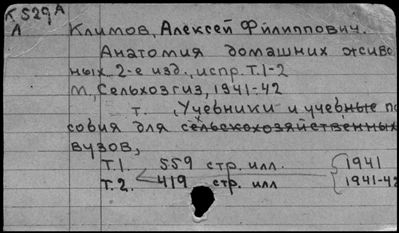 К529А
Л
Климов, Алексей Филиппович.
Анатомия домашних живо
ных. 2-е изд., испр. Т.1-2
М., Сельхозгиз, 1941-42
т. , Учебники и учебные по
собия для сельскохозяйственных
вузов,
Т.1. 559 стр. илл. 1941
Т.2. 419 стр. илл 1941-42